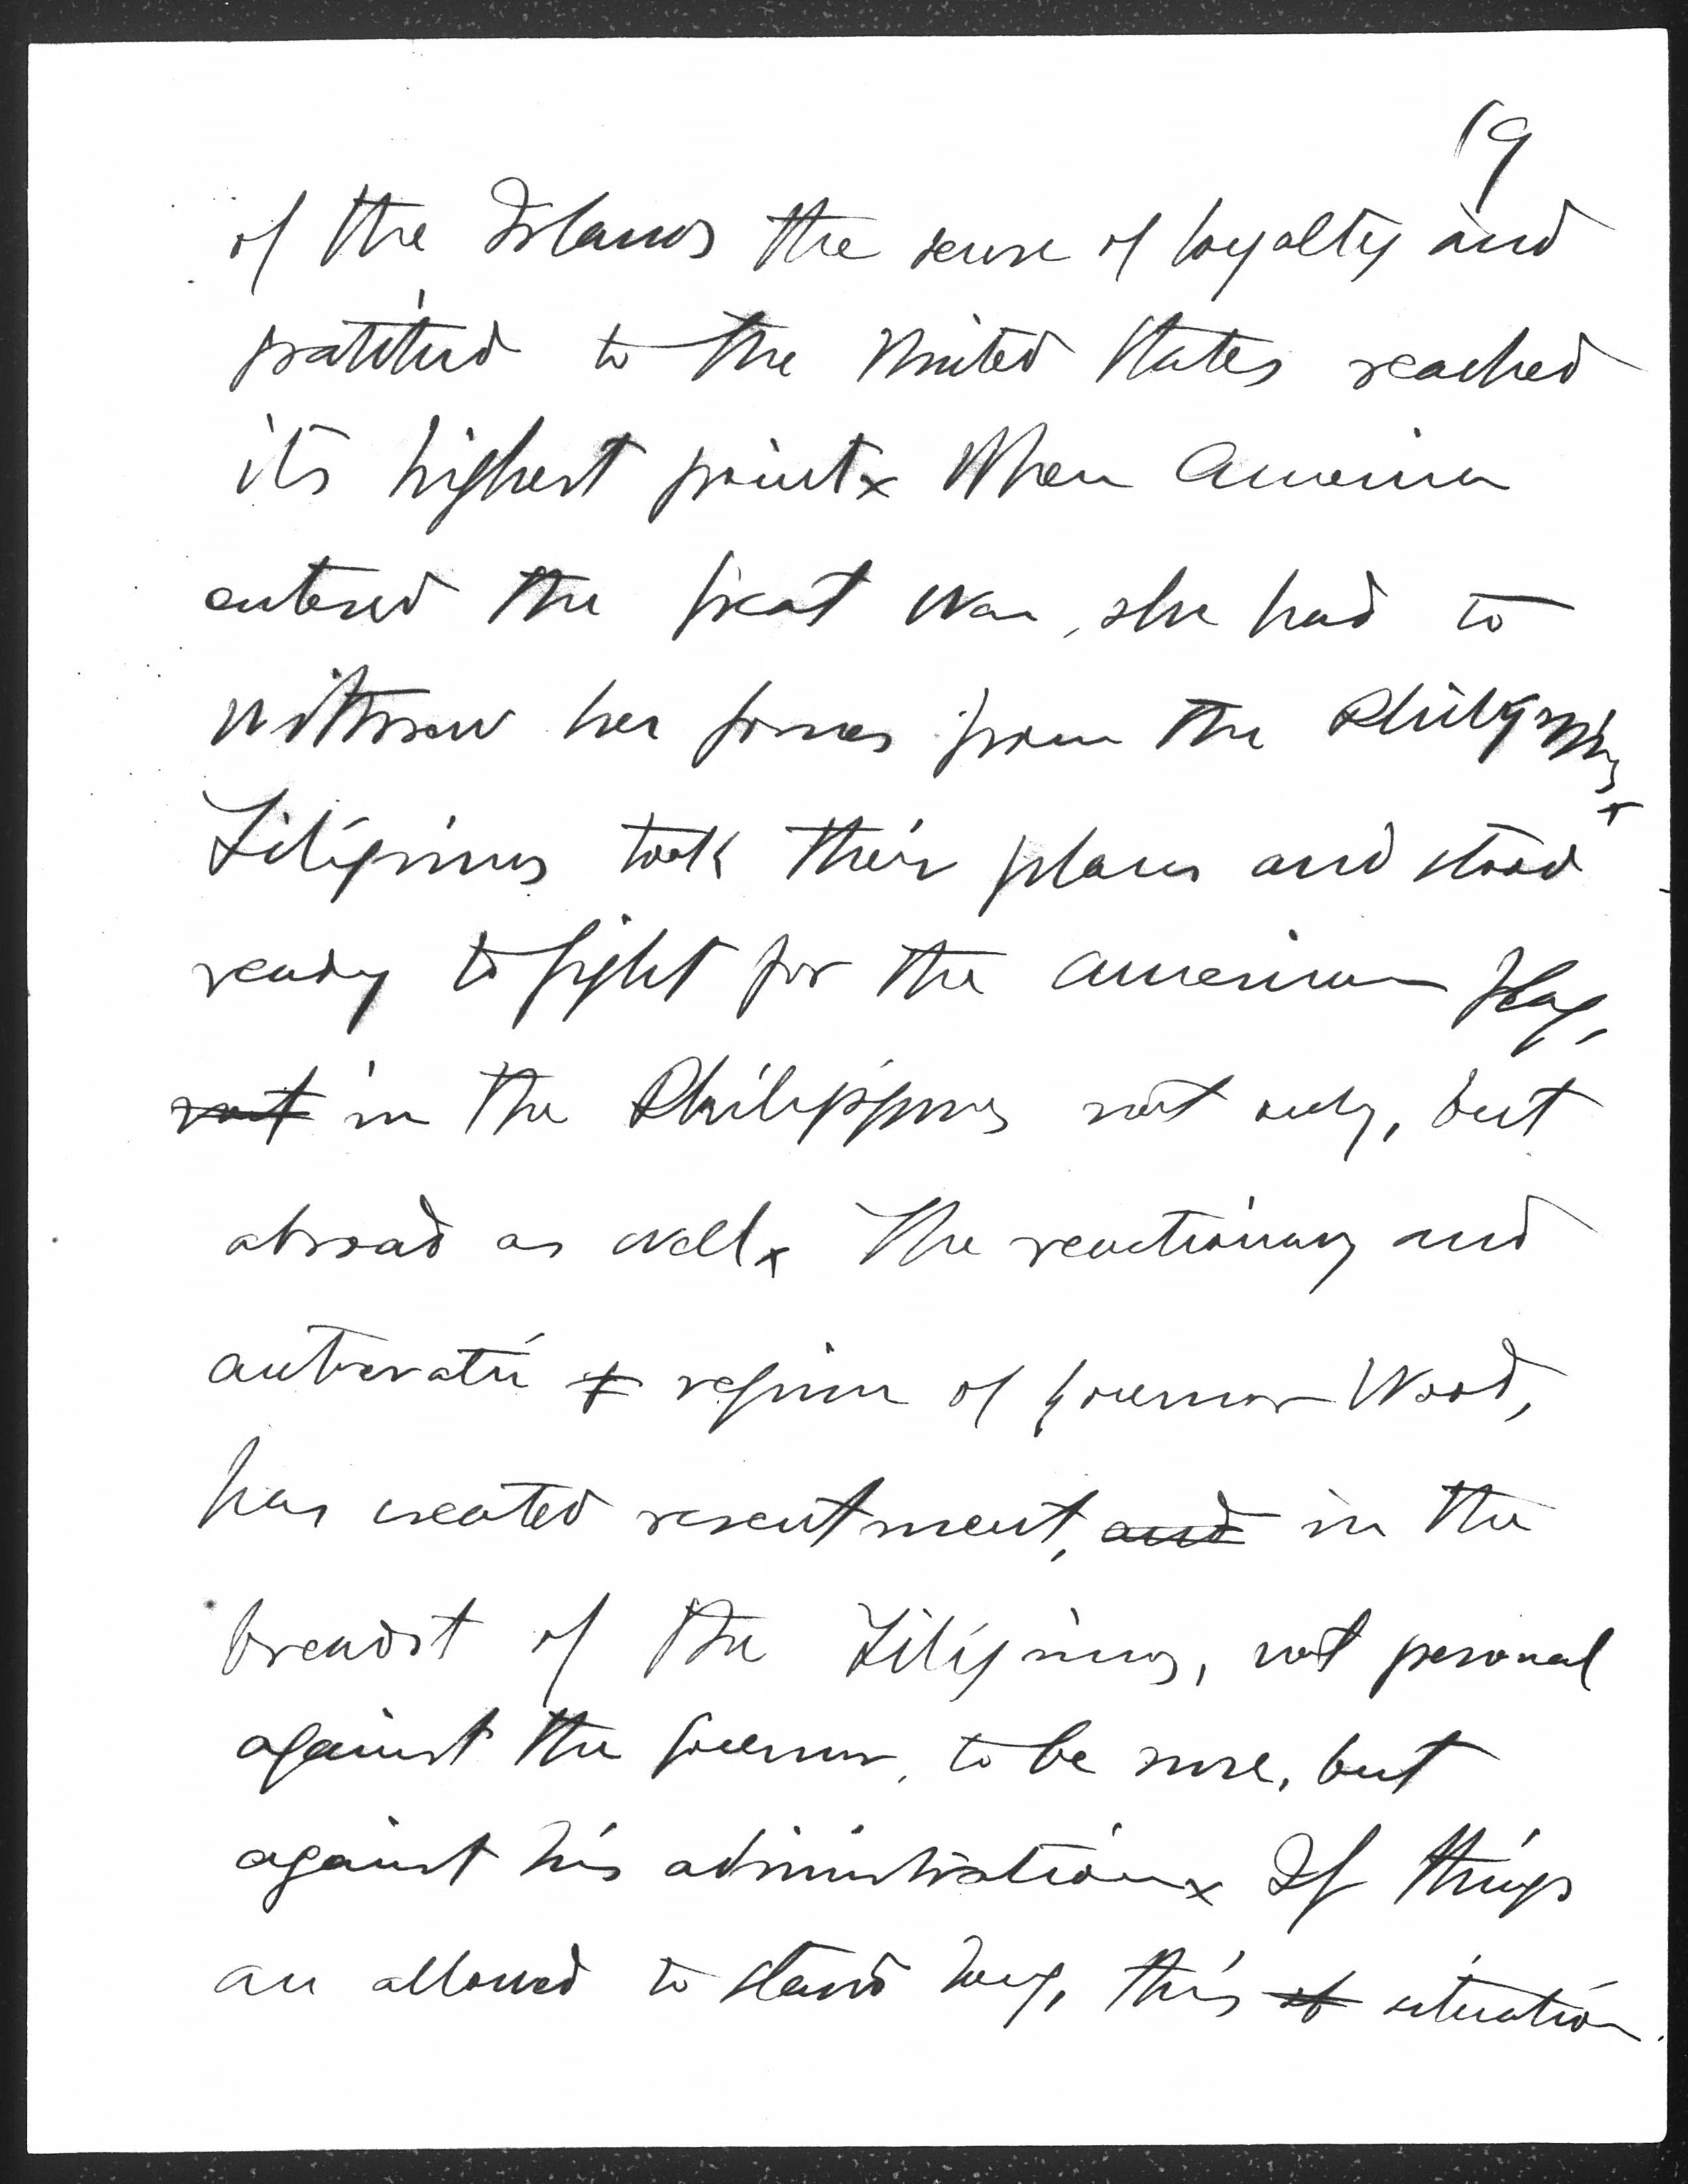 19
of the Islands the sense of loyalty and
gratitud to the United States reached
its highest pointx When America
entered the great War, she had to
withdraw her forces from the Philippinesx
Filipinos took their places and stood
ready to fight for the American flag,
not in the Philippines not only, but
abroad as wellx The reactionary and
autocratic regime of Governor Wood,
has created resentment, and in the
breadst of the Filipinos, not personal
against the Governor, to be sure, but
against his administrationx If things
are allowed to stand long, this st situation